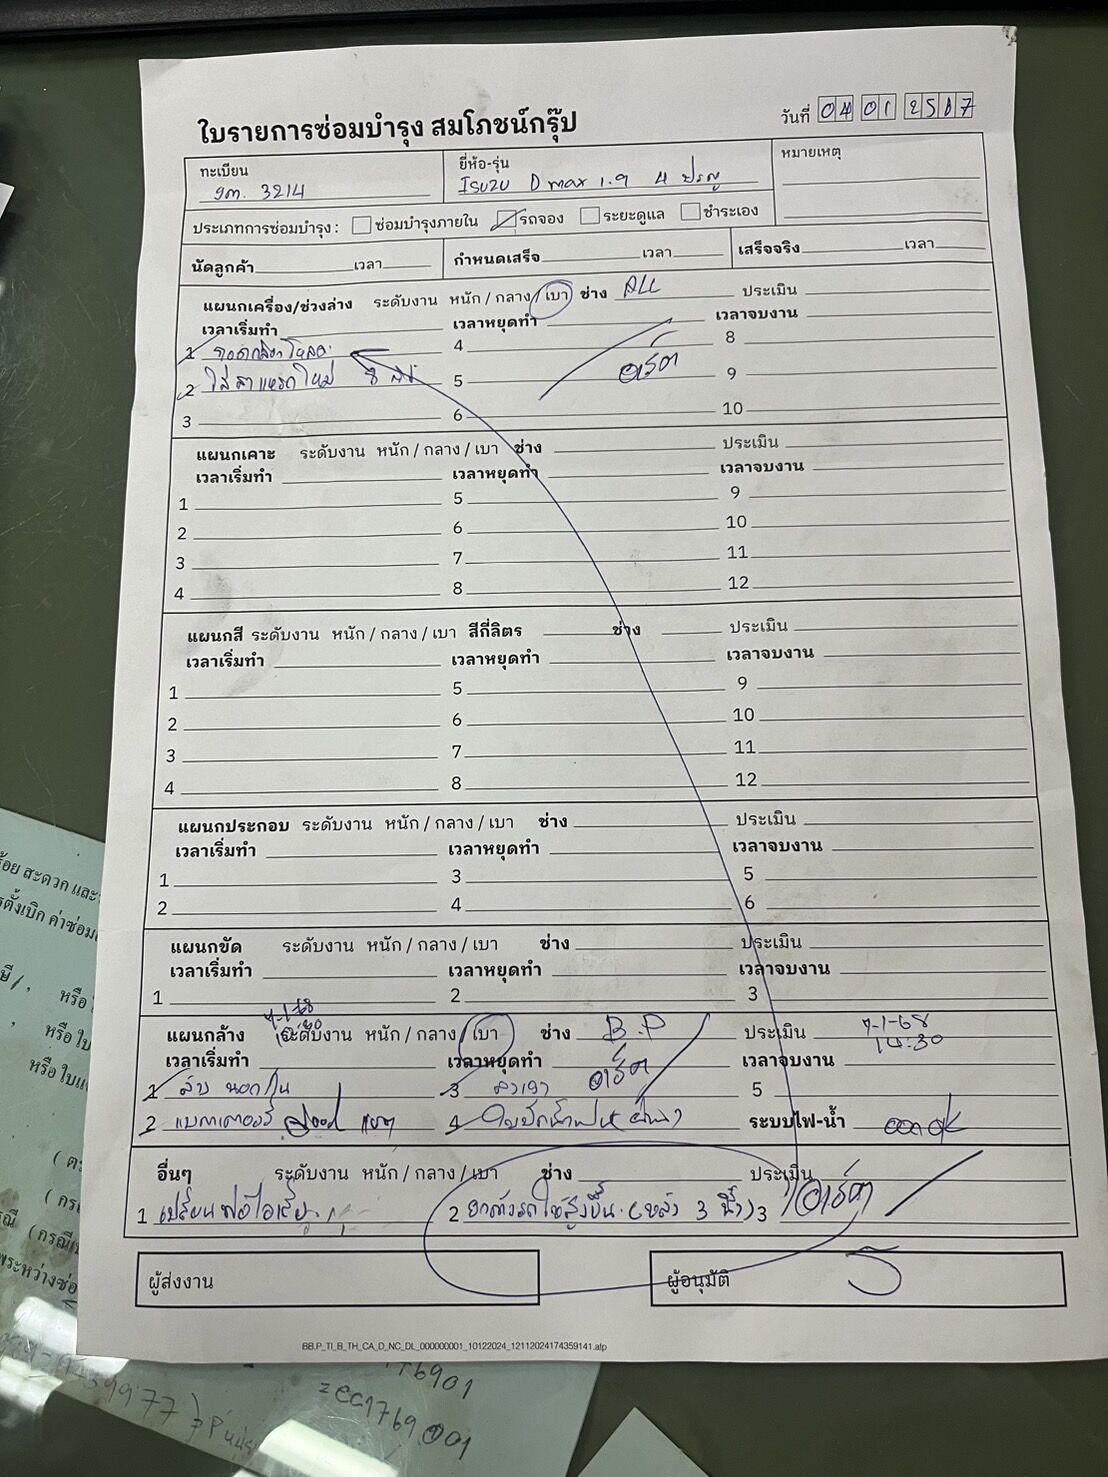 ใบรายการซ่อมบำรุง สมโภชน์กรุ๊ป
วันที่ 04 01 2567
ทะเบียน
3214
ยี่ห้อ-รุ่น
ISUZU Dmax 1.9 4 ประตู
หมายเหตุ
ประเภทการซ่อมบำรุง : ซ่อมบำรุงภายใน รถจอง ระยะดูแล ชำระเอง
นัดลูกค้า เวลา กำหนดเสร็จ เวลา เสร็จจริง เวลา
แผนกเครื่อง/ช่วงล่าง ระดับงาน หนัก / กลาง / เบา ช่าง ALL ประเมิน
เวลาเริ่มทำ เวลาหยุดทำ เวลาจบงาน
1 ถอดกล่องโหลด 4 8
2 ใส่สาแหรกใหม่ 8 5 9
3 6 10
แผนกเคาะ ระดับงาน หนัก / กลาง / เบา ช่าง ประเมิน
เวลาเริ่มทำ เวลาหยุดทำ เวลาจบงาน
1 5 9
2 6 10
3 7 11
4 8 12
แผนกสี ระดับงาน หนัก / กลาง / เบา สีกี่ลิตร ช่าง ประเมิน
เวลาเริ่มทำ เวลาหยุดทำ เวลาจบงาน
1 5 9
2 6 10
3 7 11
4 8 12
แผนกประกอบ ระดับงาน หนัก / กลาง / เบา ช่าง ประเมิน
เวลาเริ่มทำ เวลาหยุดทำ เวลาจบงาน
1 3 5
2 4 6
แผนกขัด ระดับงาน หนัก / กลาง / เบา ช่าง ประเมิน
เวลาเริ่มทำ เวลาหยุดทำ เวลาจบงาน
1 2 3
แผนกล้าง ระดับงาน หนัก / กลาง / เบา ช่าง B.P ประเมิน 7-1-68
เวลาเริ่มทำ เวลาหยุดทำ เวลาจบงาน 14:30
1 ล้าง นอก/ใน 3 ลงเงา 5
2 แบตเตอรี่ good 4 ใบปัดน้ำฝน ระบบไฟ-น้ำ ok
อื่นๆ ระดับงาน หนัก / กลาง / เบา ช่าง ประเมิน
1 เปลี่ยนท่อไอเสีย 2 ยกตัวรถให้สูงขึ้น (หลัง 3 นิ้ว) 3
ผู้ส่งงาน ผู้อนุมัติ
BB.P_TI_B_TH_CA_D_NC_DL_000000001_10122024_12112024174359141.afp